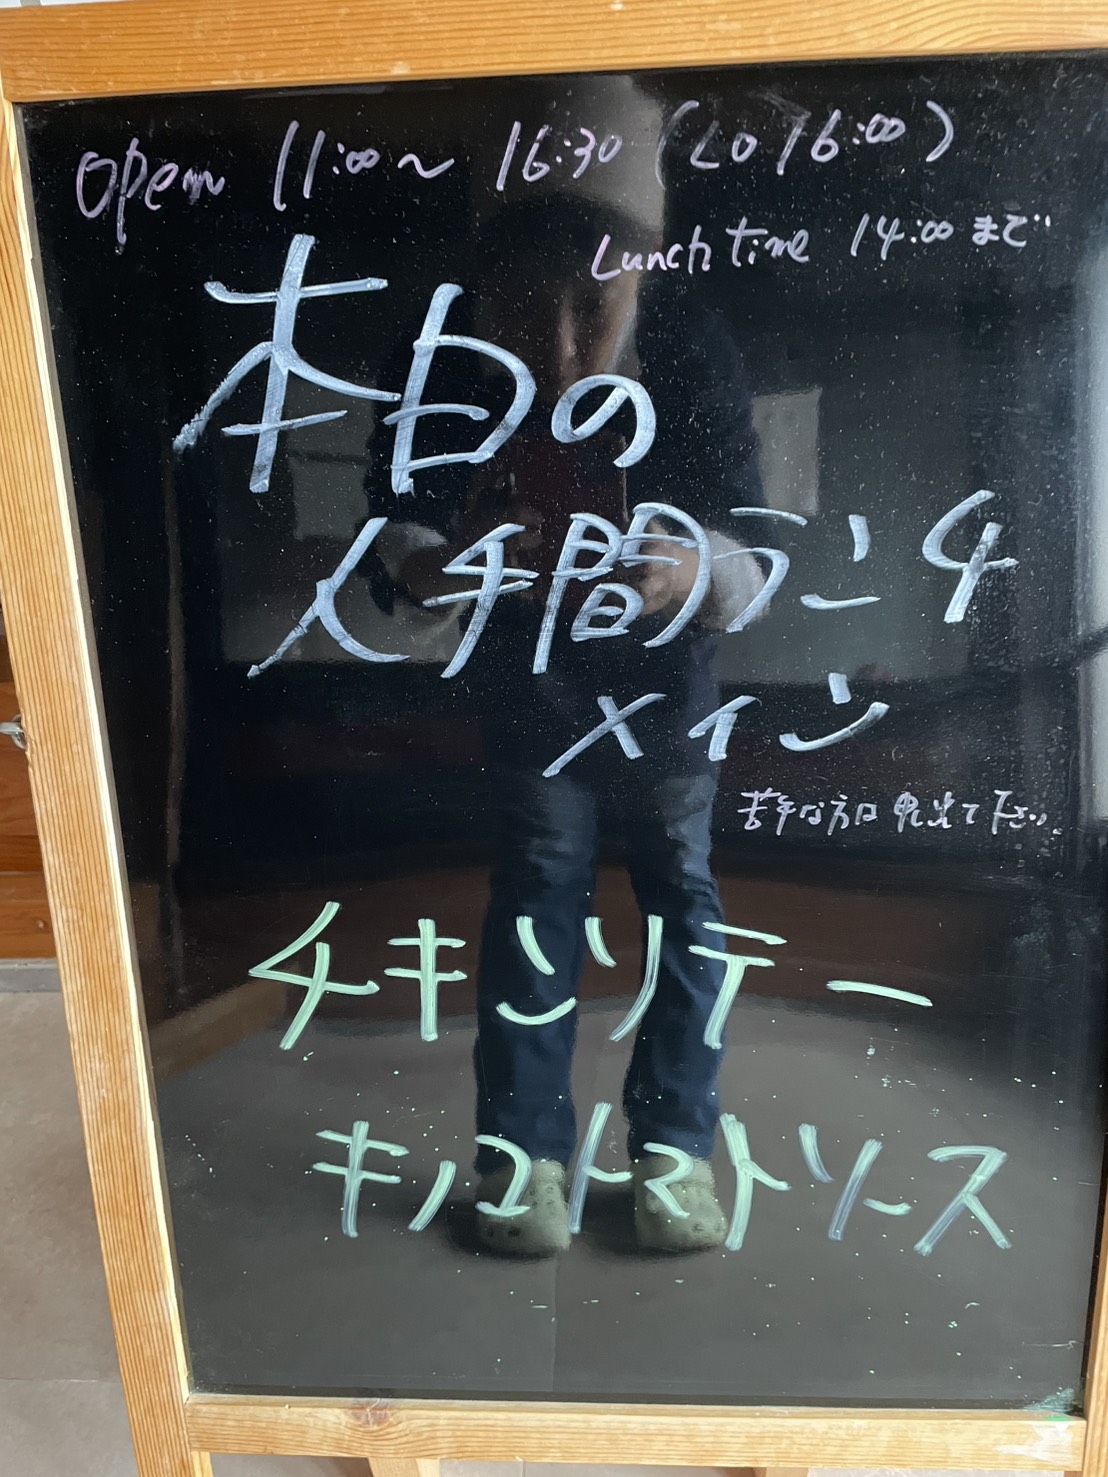 open 11:00〜 16:30 (LO 16:00)
Lunch time 14:00 まで
本日の
人手間ランチ
メイン
苦手な方は申出て下さい。
チキンソテー
キノコトマトソース